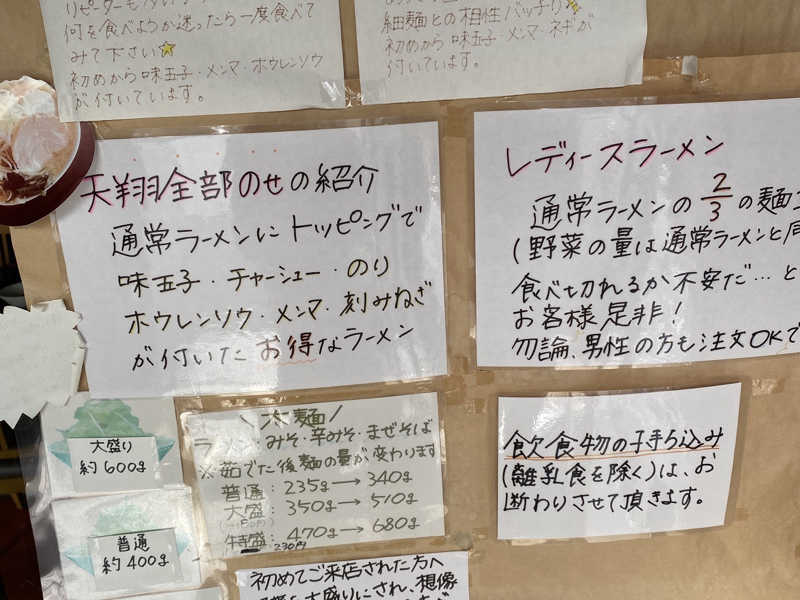 何を食べようか迷ったら一度食べて
みて下さい
初めから味玉子・メンマ・ホウレンソウ
が付いています。
細麺との相性バッチリ
初めから味玉子・メンマ・ネギが
付いています。
天翔全部のせの紹介
通常ラーメンにトッピングで
味玉子・チャーシュー・のり
ホウレンソウ・メンマ・刻みねぎ
が付いたお得なラーメン
レディースラーメン
通常ラーメンの2/3の麺
(野菜の量は通常ラーメンと同
食べ切れるか不安だ…と
お客様是非!
勿論、男性の方も注文OKで
大盛り
約600g
普通
約400g
\ 太麺 /
ラーメン:みそ・辛みそ・まぜそば
※茹でた後麺の量が変わります
普通:235g→340g
大盛:350g→510g
特盛:470g→680g
230円
飲食物の子持ち込み
(離乳食を除く)は、お
断わりさせて頂きます。
初めてご来店された方へ